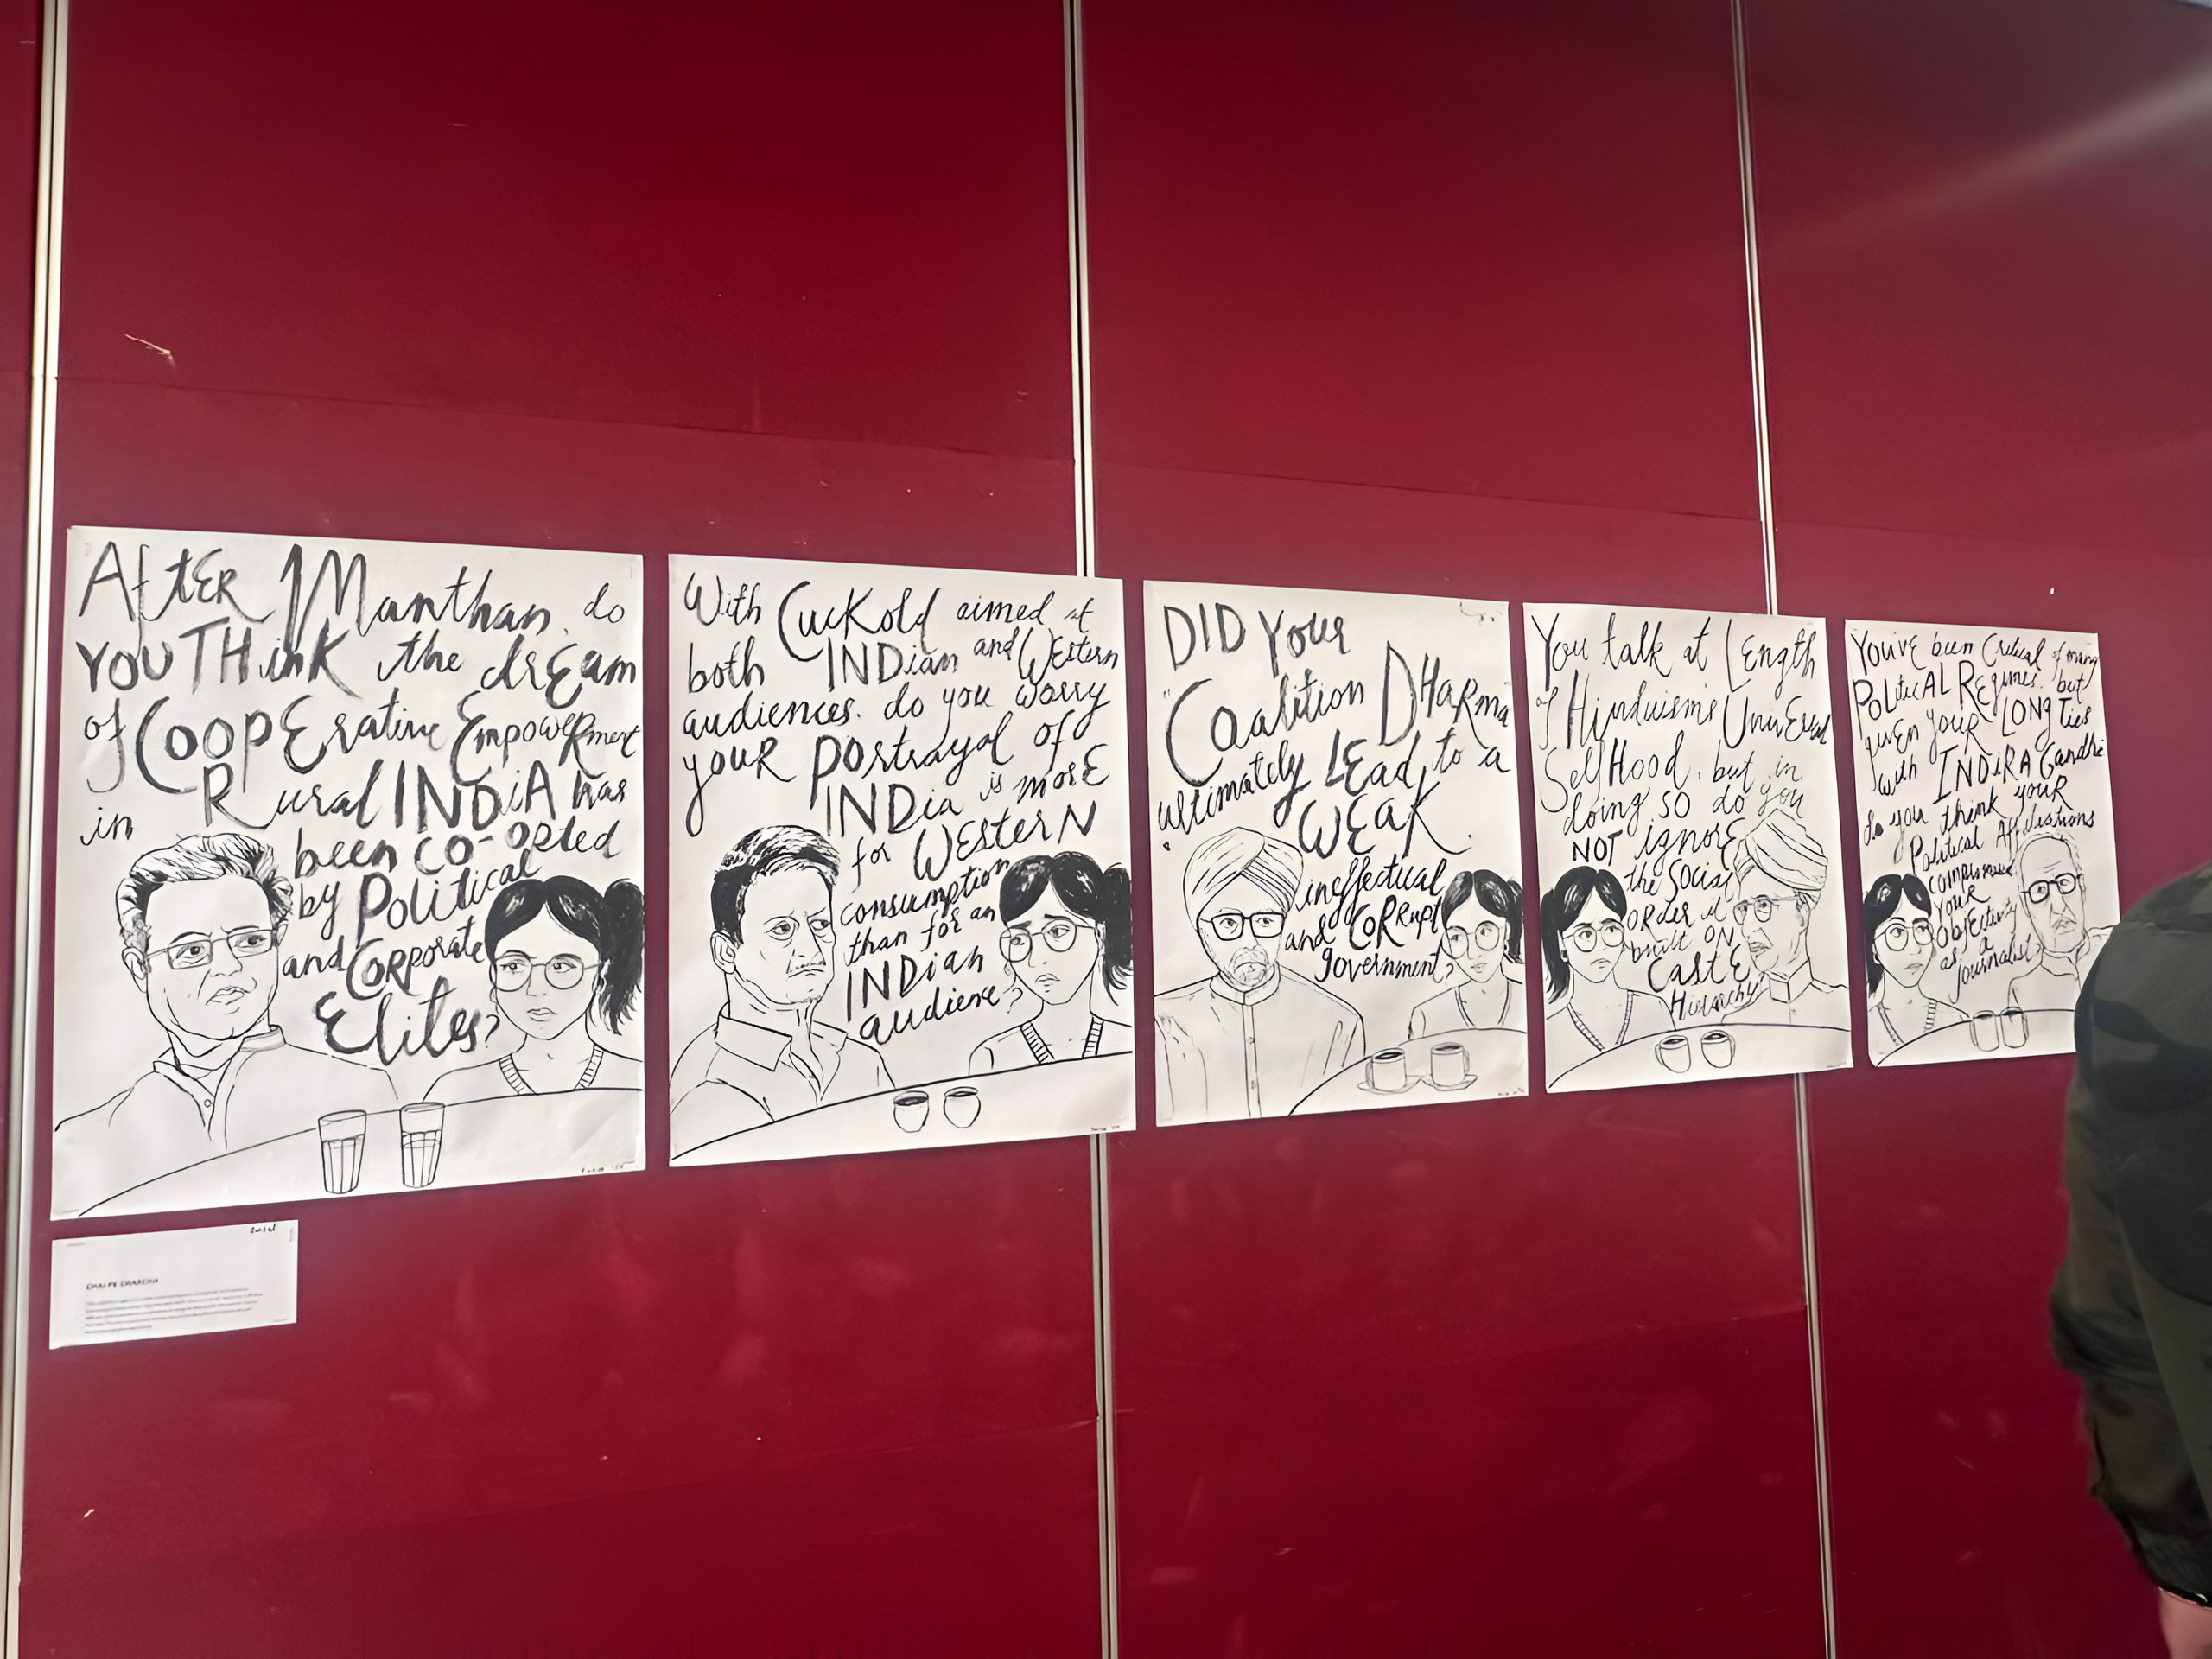 AfTER Manthan, do
YOU THink the drEam
of CoopErative EmpowERment
in Rural INDiA has
been co-opted
by Political
and CoRporate
Elites?
With CucKold aimed at
both INDian and WEstern
audiences. do you worry
youR portrayal of
INDia is morE
for WEsterN
consumption
than for an
INDian
audience?
DID Your
"Coalition DHaRma"
ultimately LEad to a
WEaK
ineffectual
and CoRRupt
government?
You talk at LEngth
of Hinduisms UnivErsal
SelfHood, but in
doing so do you
NOT ignorE
the Social
ORder it
built ON
CastE
Hierarchy?
You'vE been Critical of many
PoliticAL REgimes. but
givEn your LONG Ties
with INDiRA Gandhi
do you think youR
Political Affiliations
compromised
YOUR
Objectivity
as a
journalist?
CHAI PE CHARCHA